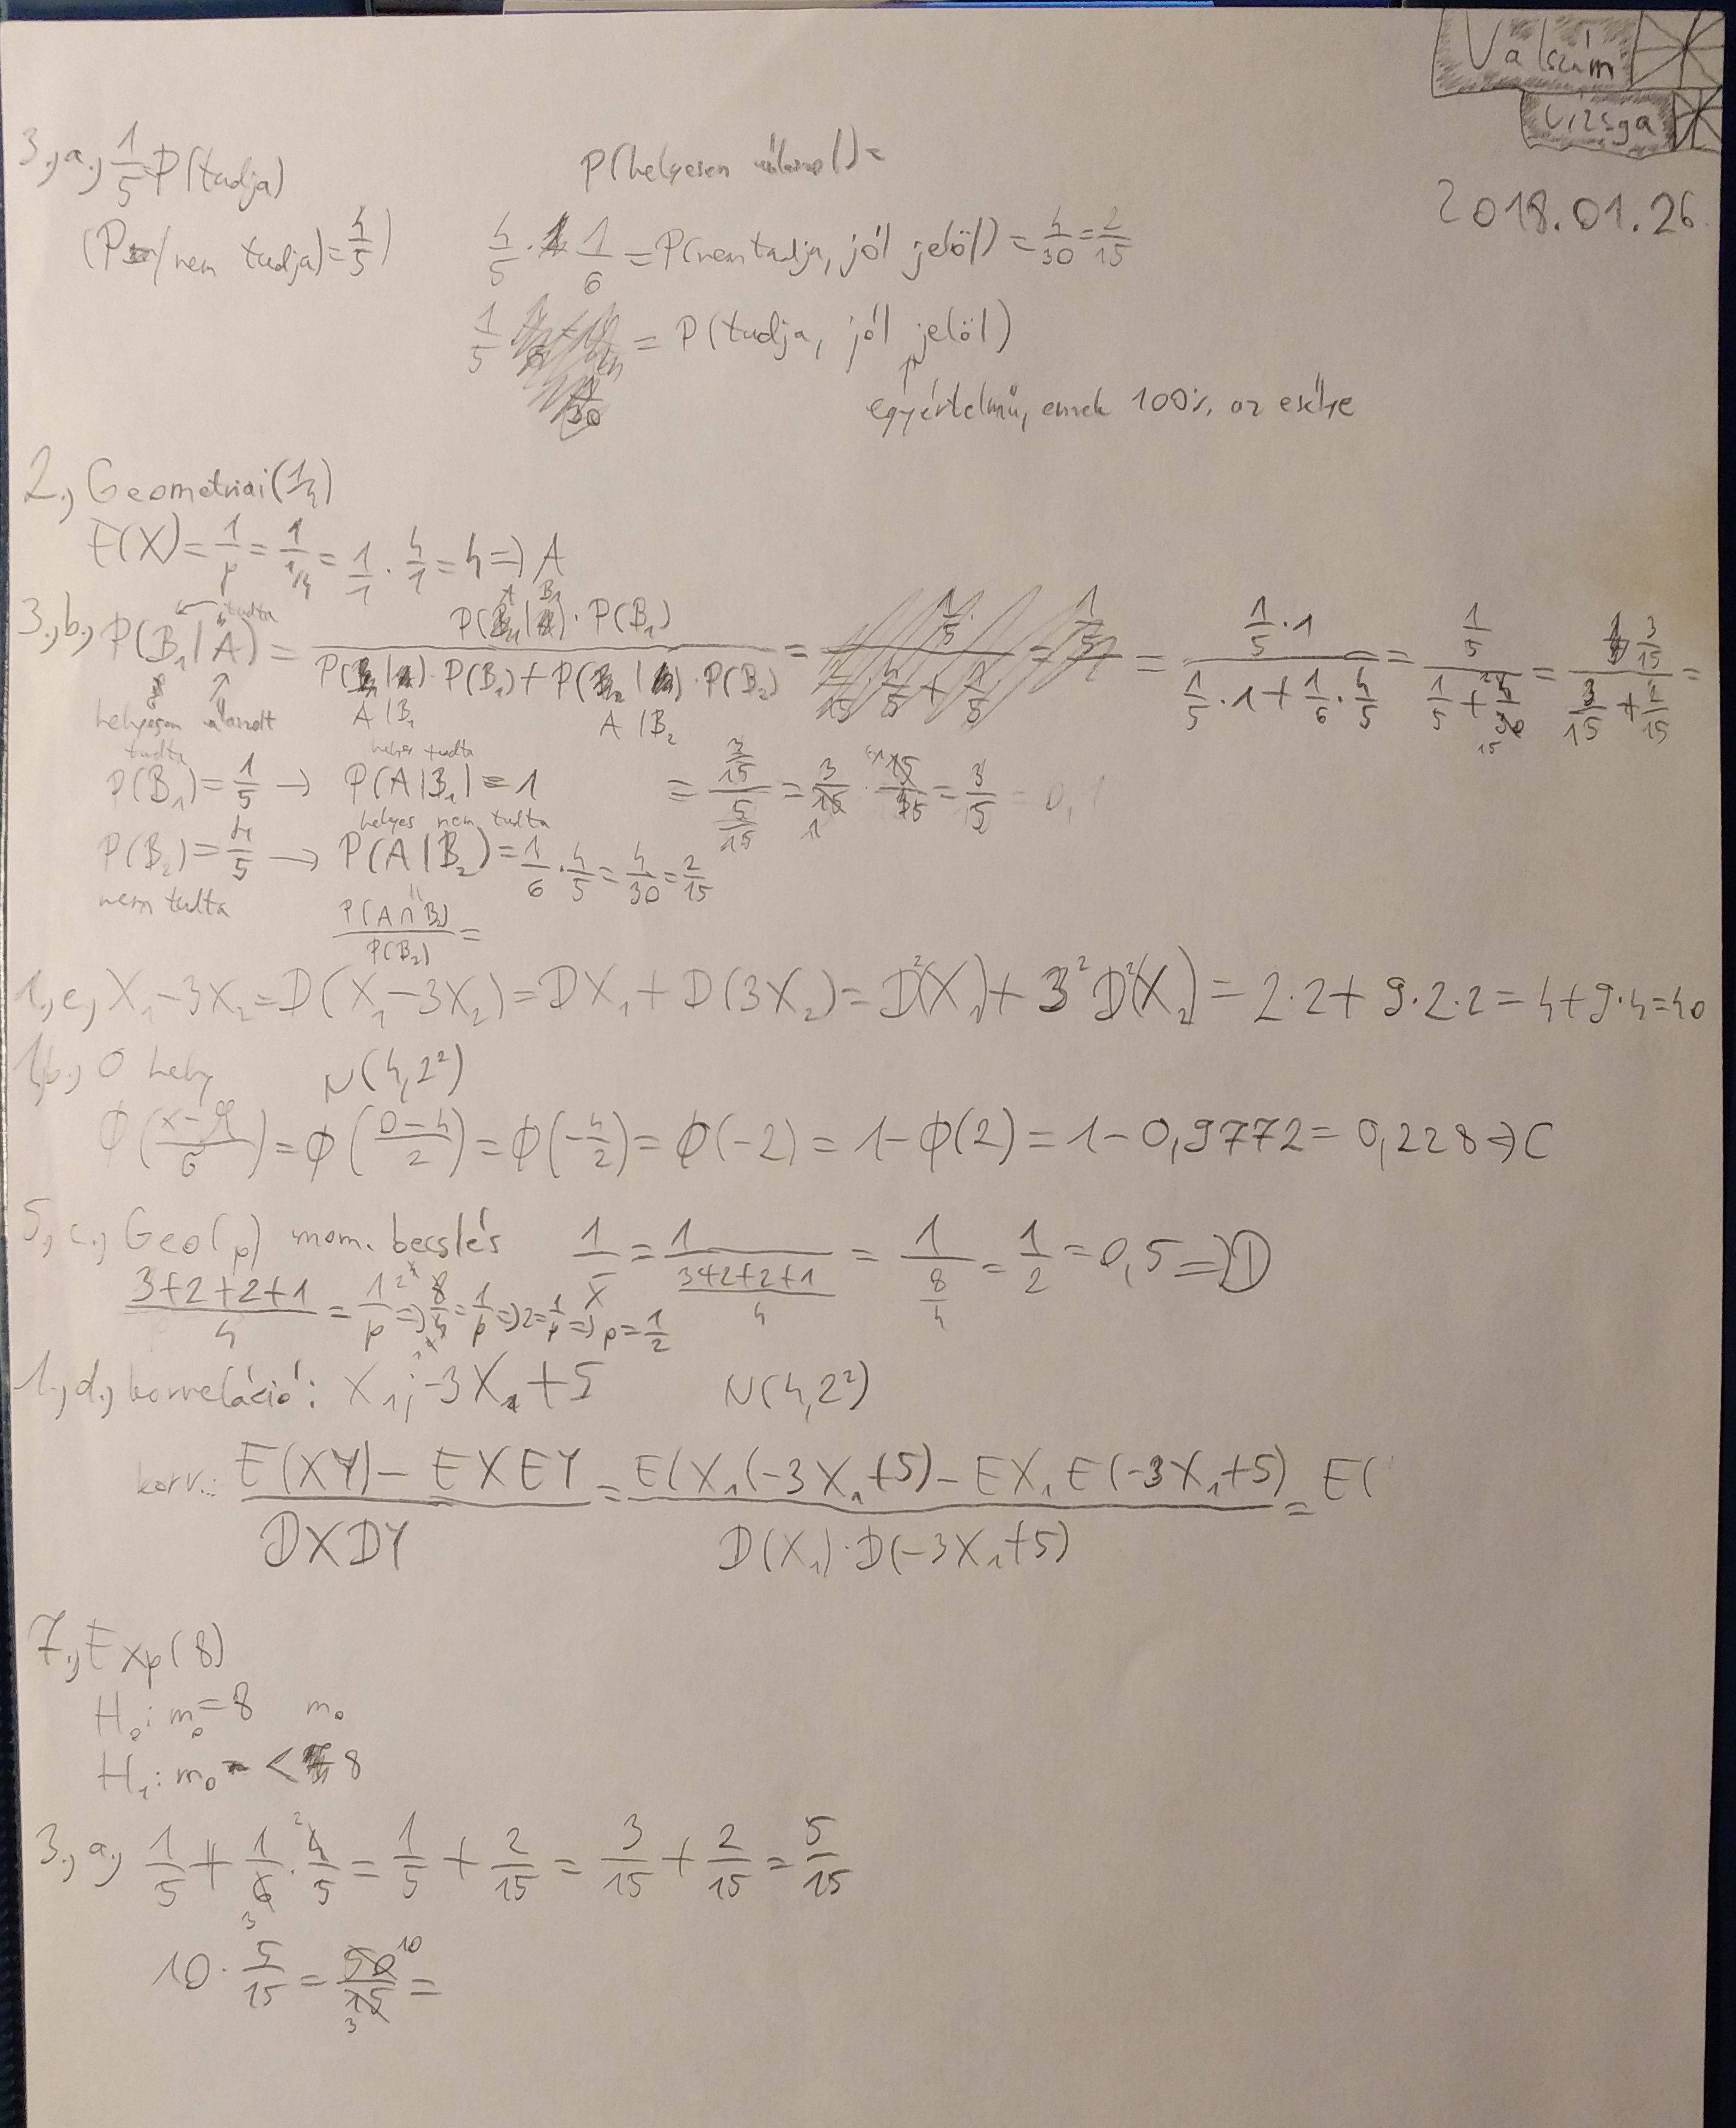 Valszám
Vizsga
2018.01.26
3., a., 1/5 = P(tudja) P(helyesen válaszol) =
(P(nem tudja) = 4/5) 4/5 · 1/6 = P(nem tudja, jól jelöl) = 4/30 = 2/15
1/5 = P(tudja, jól jelöl)
egyértelmű, ennek 100% az esélye
2., Geometriai(1/4)
E(X) = 1/p = 1/(1/4) = 1/1 · 4/1 = 4 => A
3., b., P(B₁|A) = P(A|B₁) · P(B₁) / (P(A|B₁) · P(B₁) + P(A|B₂) · P(B₂)) = (1/5 · 1) / (1/5 · 1 + 1/6 · 4/5) = (1/5) / (1/5 + 2/15) = (3/15) / (3/15 + 2/15) =
tudta
helyesen válaszolt
tudta helyes tudta
P(B₁) = 1/5 → P(A|B₁) = 1 = (3/15) / (5/15) = 3/15 · 15/5 = 3/5 = 0,
helyes nem tudta
P(B₂) = 4/5 → P(A|B₂) = 1/6 · 4/5 = 4/30 = 2/15
nem tudta P(A∩B₂)/P(B₂) =
1., e., X₁ - 3X₂ = D(X₁ - 3X₂) = DX₁ + D(3X₂) = D²(X₁) + 3² D²(X₂) = 2·2 + 9·2·2 = 4 + 9·4 = 40
1., b., 0 hely N(4, 2²)
Φ((x-μ)/σ) = Φ((0-4)/2) = Φ(-4/2) = Φ(-2) = 1 - Φ(2) = 1 - 0,9772 = 0,228 => C
5., c., Geo(p) mom. becslés 1/x̄ = 1/((3+2+2+1)/4) = 1/(8/4) = 1/2 = 0,5 => D
(3+2+2+1)/4 = 1/p => 8/4 = 1/p => 2 = 1/p => p = 1/2
1., d., korreláció: X₁; -3X₁ + 5 N(4, 2²)
korr.: (E(XY) - EXEY)/(DXDY) = (E(X₁(-3X₁+5) - EX₁E(-3X₁+5))/(D(X₁)·D(-3X₁+5)) = E(
7., Exp(8)
H₀: m₀ = 8 m₀
H₁: m₀ < 8
3., a., 1/5 + 1/6 · 4/5 = 1/5 + 2/15 = 3/15 + 2/15 = 5/15
10 · 5/15 = 50/15 =